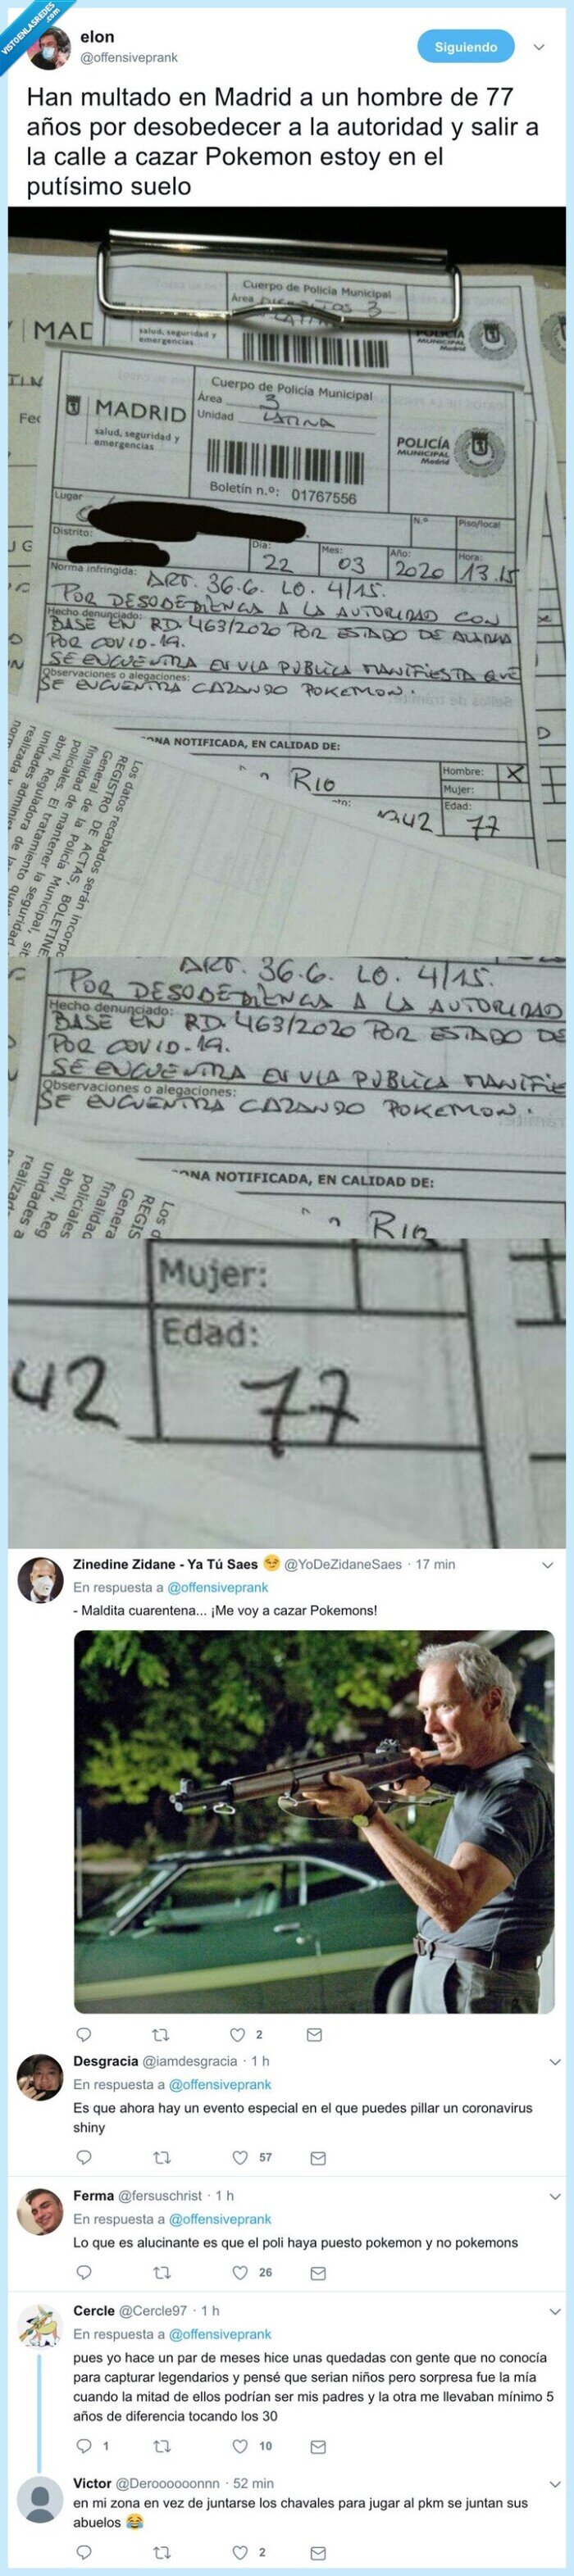 VISTOENLASREDES
.com
elon
@offensiveprank
Siguiendo
Han multado en Madrid a un hombre de 77
años por desobedecer a la autoridad y salir a
la calle a cazar Pokemon estoy en el
putísimo suelo
Cuerpo de Policía Municipal
Área
3
MAD
salud, seguridad y
emergencias
POLICÍA
MUNICIPAL
Madrid
MADRID
salud, seguridad y
emergencias
Cuerpo de Policía Municipal
Área 3
Unidad LATINA
POLICÍA
MUNICIPAL
Madrid
Boletín n.º: 01767556
Lugar
N.º
Piso/local
Distrito:
Día: 22
Mes: 03
Año: 2020
Hora: 13.15
Norma infringida: ART. 36.6. LO. 4/15.
POR DESOBEDIENCIA A LA AUTORIDAD CON
Hecho denunciado:
BASE EN RD. 463/2020 POR ESTADO DE ALARMA
POR COVID-19.
SE ENCUENTRA EN VIA PUBLICA MANIFIESTA QUE
Observaciones o alegaciones:
SE ENCUENTRA CAZANDO POKEMON.
ONA NOTIFICADA, EN CALIDAD DE:
RIO
Hombre: X
Mujer:
Edad:
42
77
Los datos recabados serán incorpo
REGISTRO DE ACTAS, BOLETINE
General de la Policía Municipal,
finalidad de mantener la seguridad
policiales. El tratamiento
abril, Reguladora de
unidades adminis
realizada
ART. 36.6. LO. 4/15.
POR DESOBEDIENCIA A LA AUTORIDAD
Hecho denunciado:
BASE EN RD. 463/2020 POR ESTADO DE
POR COVID-19.
SE ENCUENTRA EN VIA PUBLICA MANIFIE
Observaciones o alegaciones:
SE ENCUENTRA CAZANDO POKEMON.
ONA NOTIFICADA, EN CALIDAD DE:
RIO
Los d
REGIS
Genera
finalidad
policiales
abril, Reg
unidades a
realizad
Mujer:
Edad:
42
77
Zinedine Zidane - Ya Tú Saes 😏 @YoDeZidaneSaes · 17 min
En respuesta a @offensiveprank
- Maldita cuarentena... ¡Me voy a cazar Pokemons!
2
Desgracia @iamdesgracia · 1 h
En respuesta a @offensiveprank
Es que ahora hay un evento especial en el que puedes pillar un coronavirus
shiny
57
Ferma @fersuschrist · 1 h
En respuesta a @offensiveprank
Lo que es alucinante es que el poli haya puesto pokemon y no pokemons
26
Cercle @Cercle97 · 1 h
En respuesta a @offensiveprank
pues yo hace un par de meses hice unas quedadas con gente que no conocía
para capturar legendarios y pensé que serian niños pero sorpresa fue la mía
cuando la mitad de ellos podrían ser mis padres y la otra me llevaban mínimo 5
años de diferencia tocando los 30
1
10
Victor @Deroooooonnn · 52 min
en mi zona en vez de juntarse los chavales para jugar al pkm se juntan sus
abuelos 😂
2